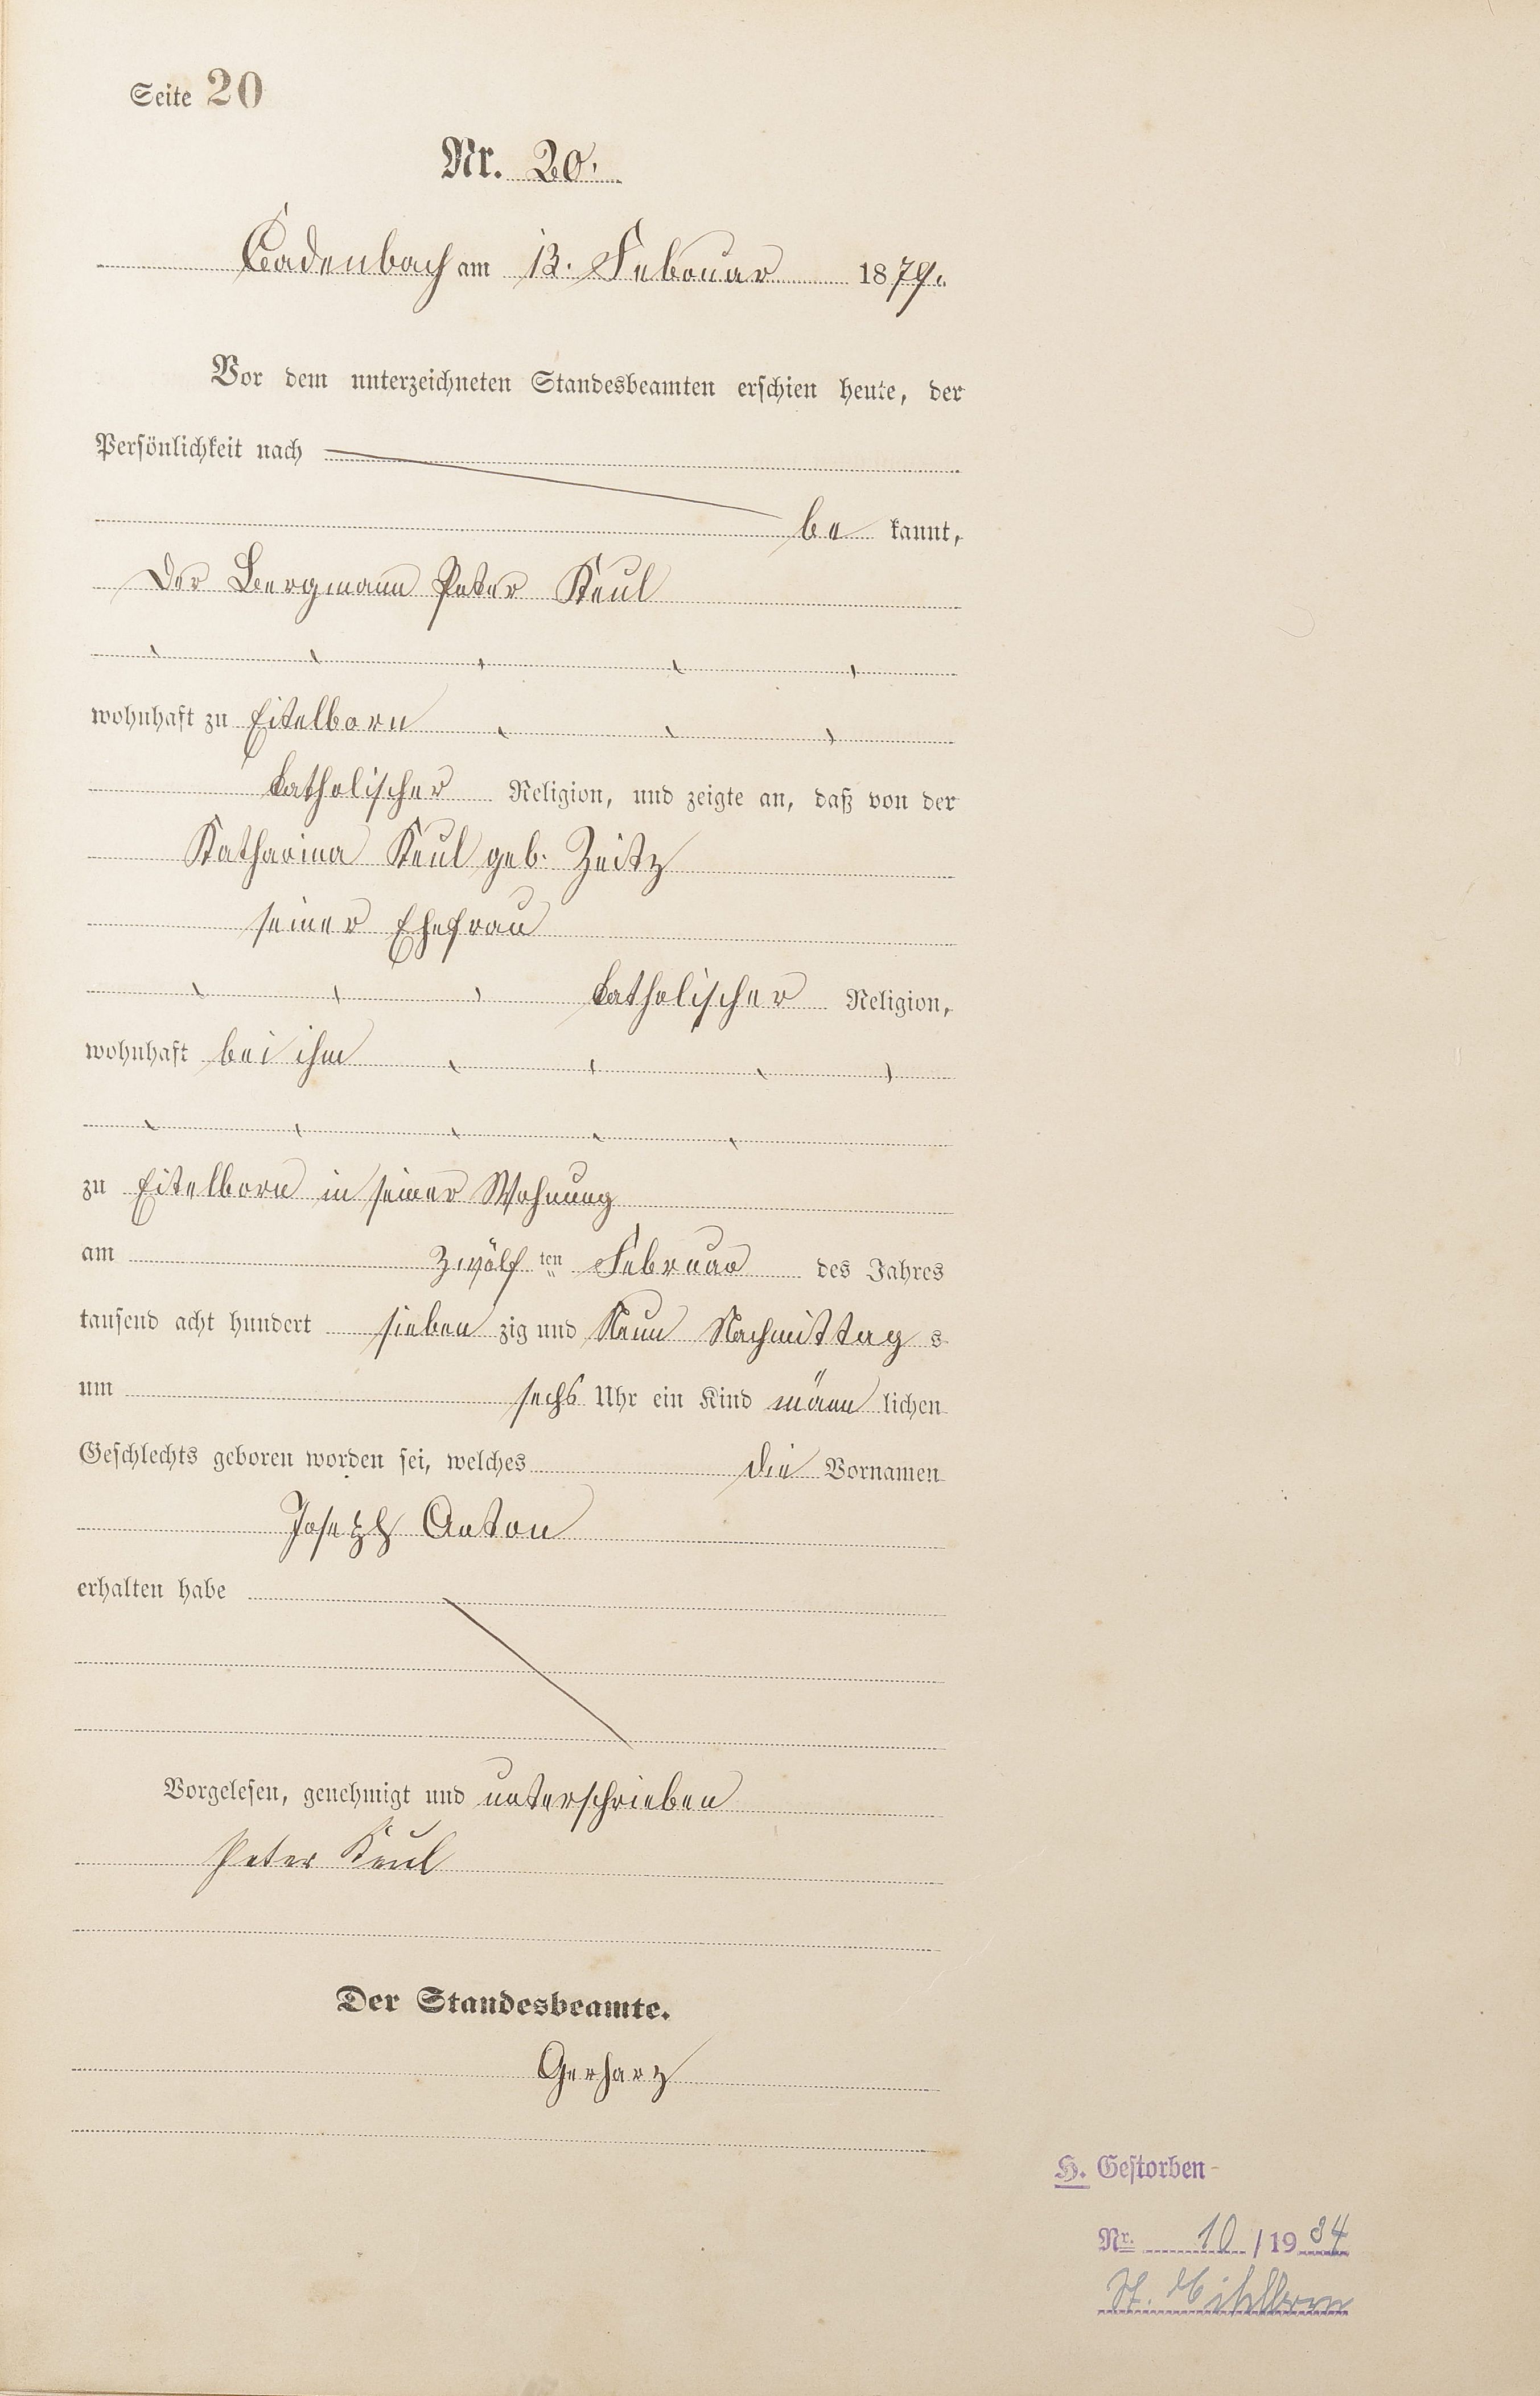 Seite 20
Nr. 20.
Cadenbach am 13. Februar 1879.
Vor dem unterzeichneten Standesbeamten erschien heute, der
Persönlichkeit nach
be kannt,
Der Bergmann Peter Keul
wohnhaft zu Eitelborn
katholischer Religion, und zeigte an, daß von der
Katharina Keul geb. Zeitz
seiner Ehefrau
katholischer Religion,
wohnhaft bei ihm
zu Eitelborn in seiner Wohnung
am Zwölf ten Februar des Jahres
tausend acht hundert sieben zig und Neun Nachmittag s
um sechs Uhr ein Kind männ lichen
Geschlechts geboren worden sei, welches die Vornamen
Joseph Anton
erhalten habe
Vorgelesen, genehmigt und unterschrieben
Peter Keul
Der Standesbeamte.
Gerharz
H. Gestorben
Nr. 10 / 19 34
St. Eitelborn